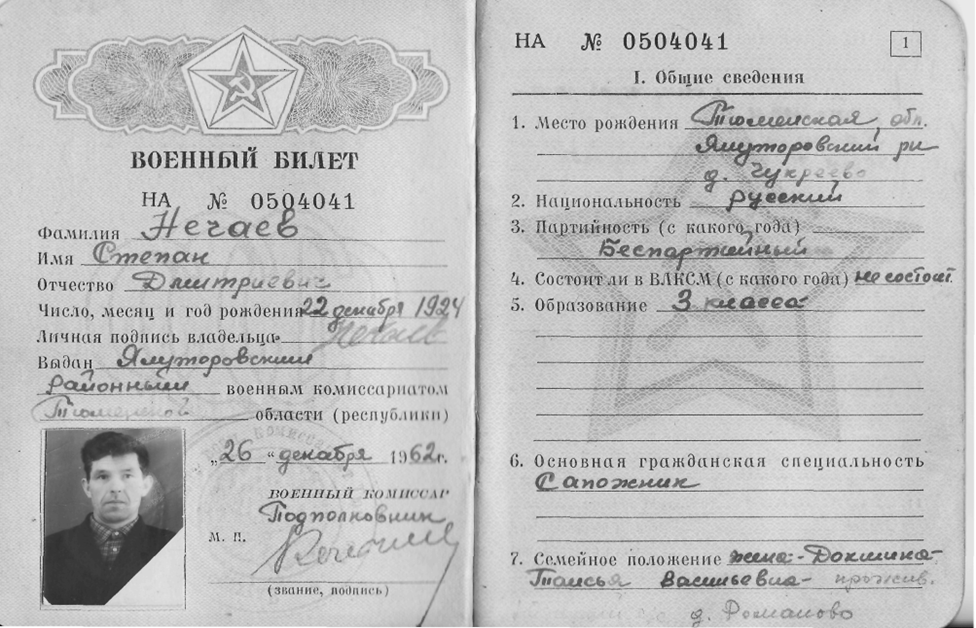 ВОЕННЫЙ БИЛЕТ
НА № 0504041
Фамилия Нечаев
Имя Степан
Отчество Дмитриевич
Число, месяц и год рождения 22 декабря 1924
Личная подпись владельца Нечаев
Выдан Ялуторовским
районным военным комиссариатом
Тюменской области (республики)
„26 “ декабря 1962 г.
ВОЕННЫЙ КОМИССАР
Подполковник
М. П.
(звание, подпись)
НА № 0504041
1
I. Общие сведения
1. Место рождения Тюменская обл.
Ялуторовский рн
д. Чукреево
2. Национальность русский
3. Партийность (с какого года)
Беспартийный
4. Состоит ли в ВЛКСМ (с какого года) не состоит.
5. Образование 3 класса
6. Основная гражданская специальность
Сапожник
7. Семейное положение жена-
Таисья Васильевна- прожив.
д. Романово